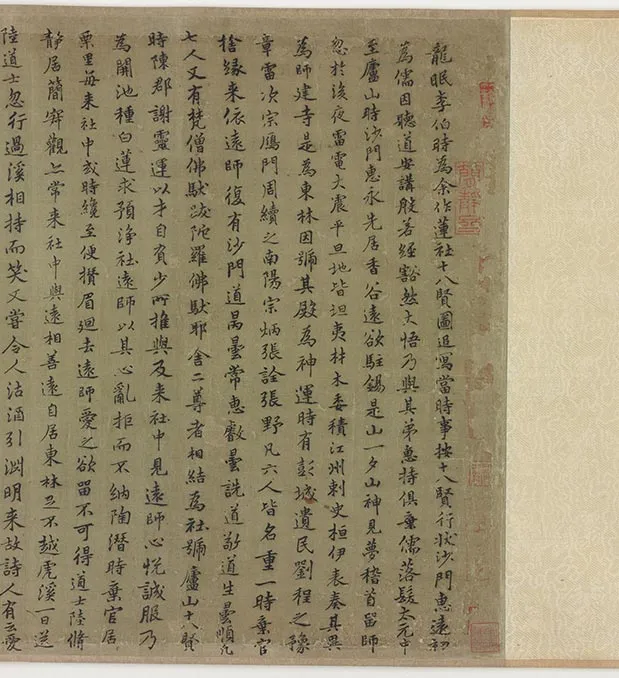 龍眠李伯時為余作蓮社十八賢圖追寫當時事按十八賢行狀沙門惠遠初
為儒因聽道安講般若經豁然大悟乃與其弟惠持俱棄儒落髮太元中
至廬山時沙門惠永先居香谷遠欲駐錫是山一夕山神見夢稽首留師
忽於後夜雷電大震平旦地皆坦夷材木委積江州刺史桓伊表奏其異
為師建寺是為東林因號其殿為神運時有彭城遺民劉程之豫
章雷次宗鴈門周續之南陽宗炳張詮張野凡六人皆名重一時棄官
捨緣來依遠師復有沙門道昺曇常惠叡曇詵道敬道生曇順凡
七人又有梵僧佛馱跋陁羅佛馱耶舍二尊者相結為社號廬山十八賢
時陳郡謝靈運以才自負少所推與及來社中見遠師心悅誠服乃
為開池種白蓮求預淨社遠師以其心亂拒而不納陶潛時棄官居
栗里每來社中或時纔至便攢眉迴去遠師愛之欲留不可得道士陸脩
靜居簡寂觀亦常來社中與遠相善遠自居東林足不越虎溪一日送
陸道士忽行過溪相持而笑又嘗令人沽酒引淵明來故詩人有云愛